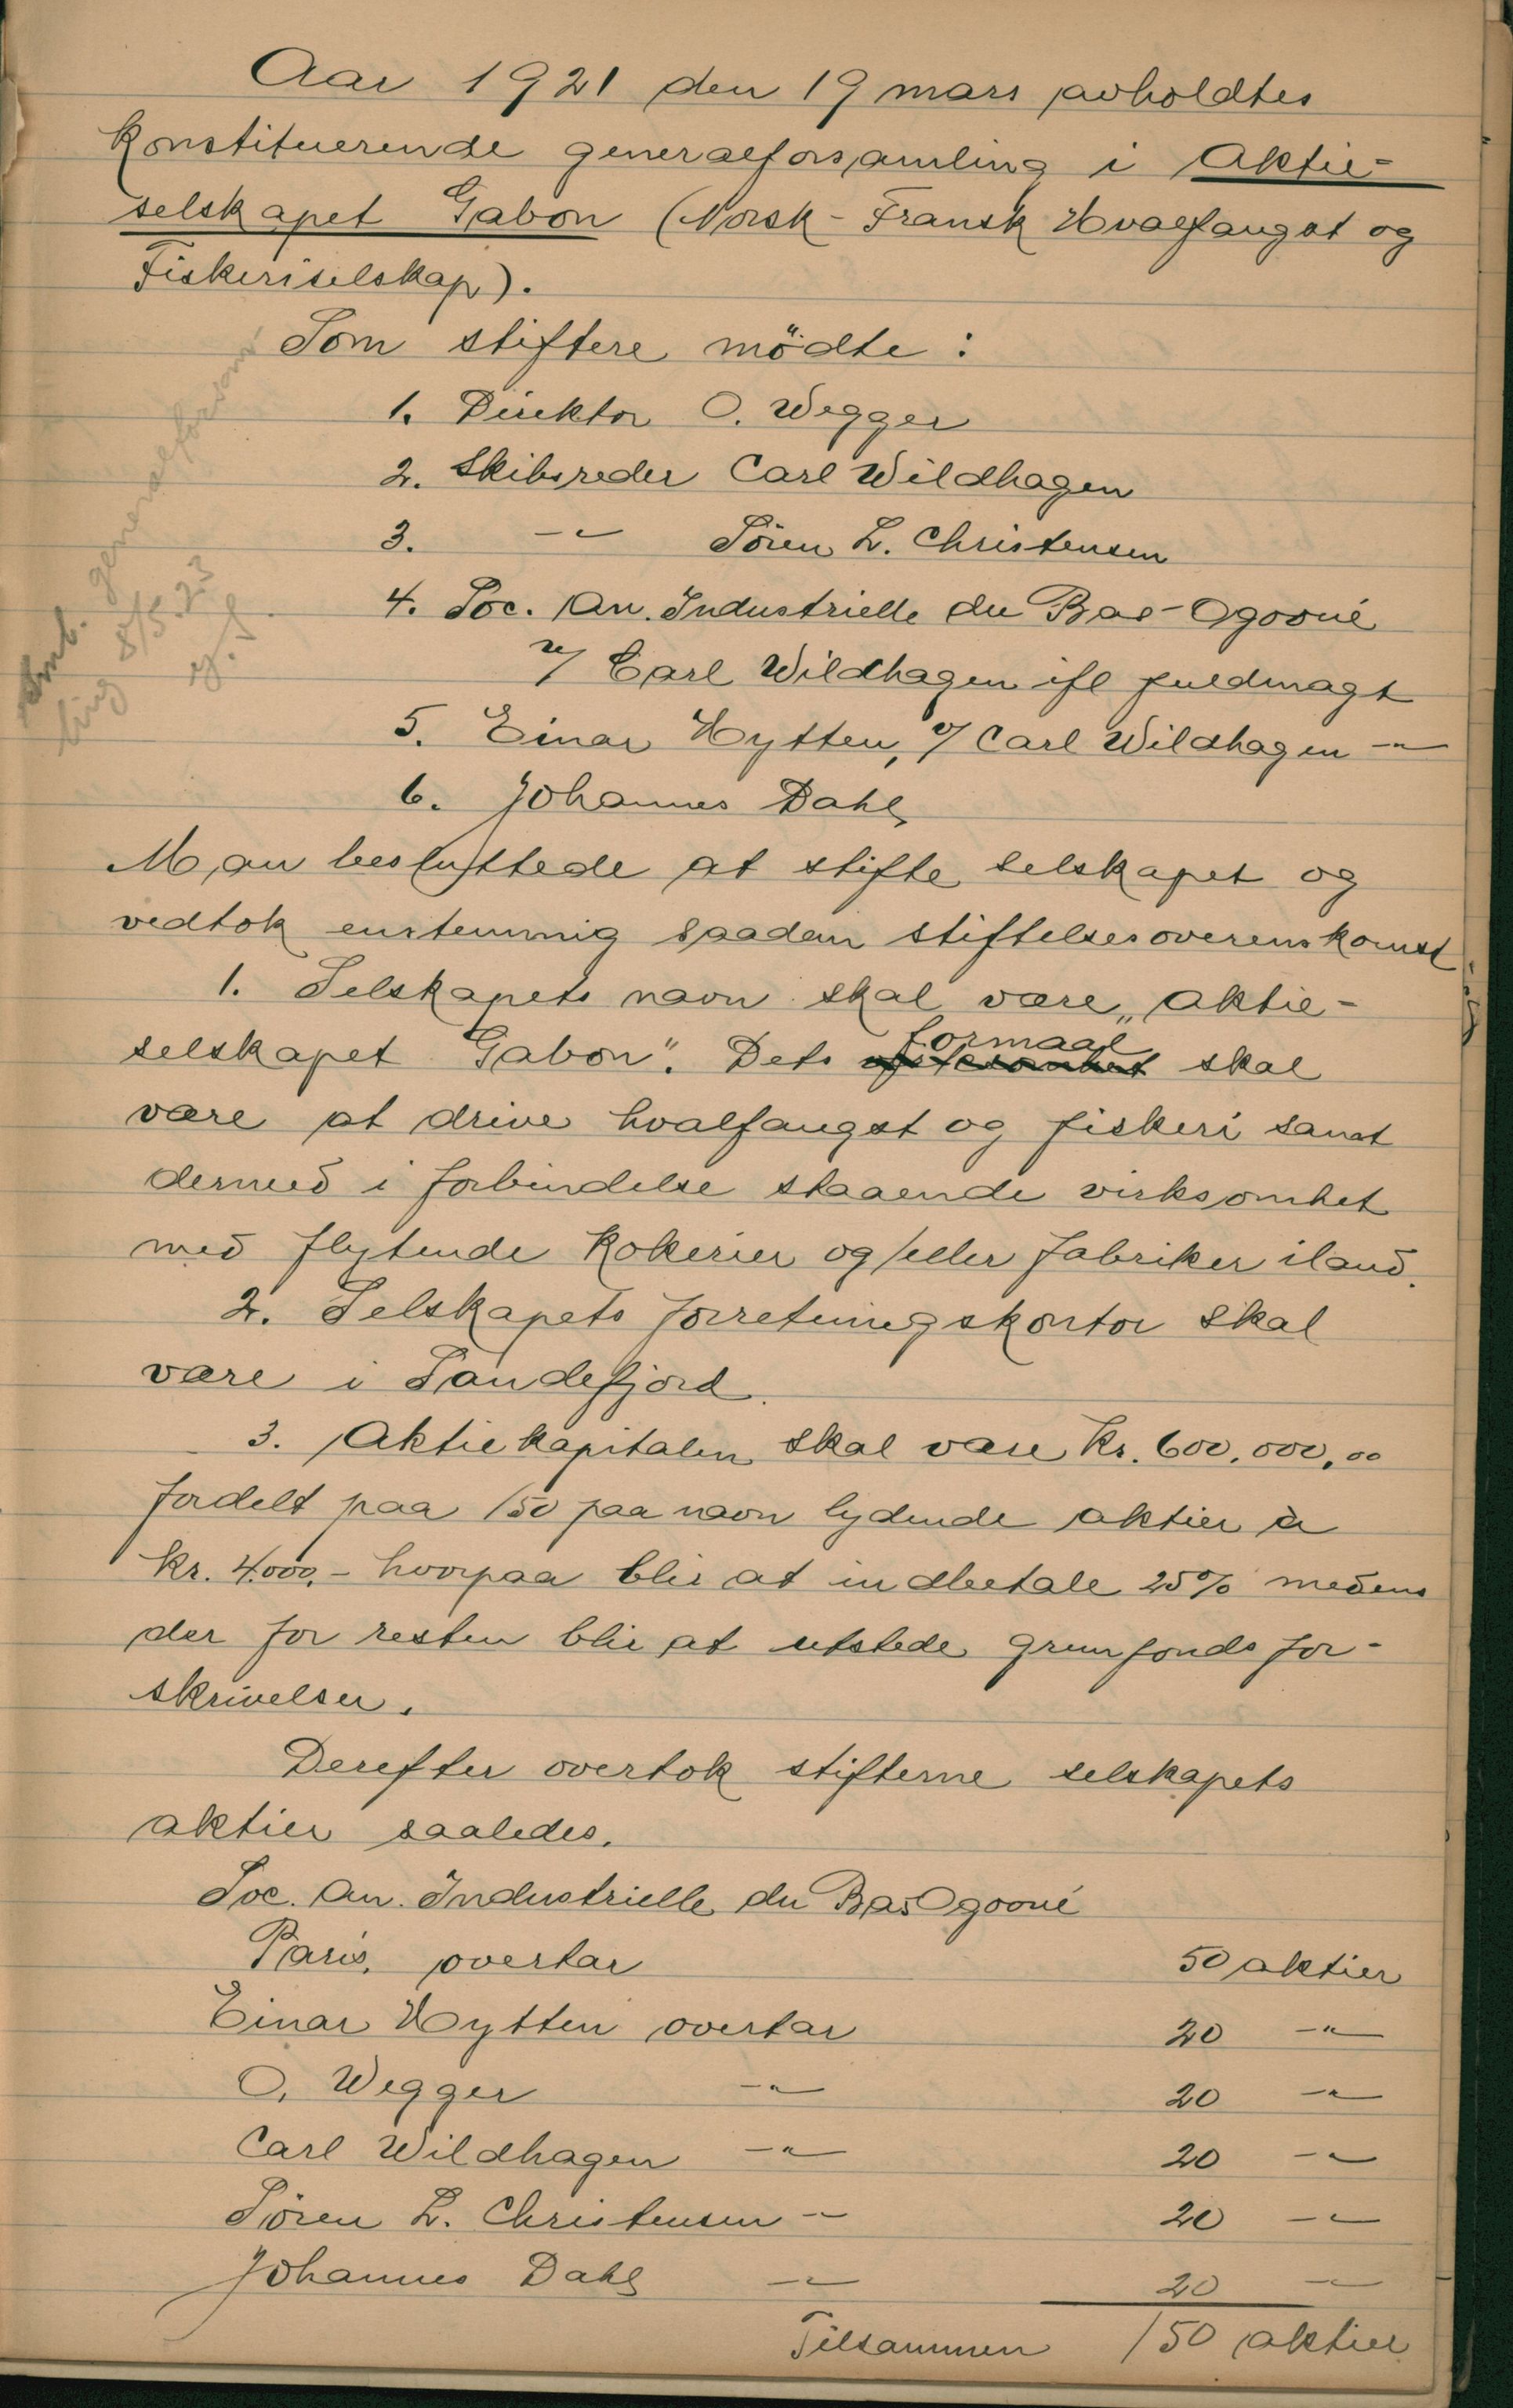 Aar 1921 den 19 mars avholdtes
konstituerende generalforsamling i Aktie-
selskapet Gabon (Norsk-Fransk Hvalfangst og
Fiskeriselskap).
Som stiftere mödte:
1. Direktor O. Wegger
2. Skibsreder Carl Wildhagen
3. -"- Sören L. Christensen
4. Soc. An. Industrielle du Bas-Ogooué
v/ Carl Wildhagen ifl fuldmagt
5. Einar Hytten, v/ Carl Wildhagen -"-
6. Johannes Dahl
Man besluttede at stifte selskapet og
vedtok enstemmig saadan stiftelsesoverenskomst
1. Selskapets navn skal være „Aktie-
selskapet Gabon". Dets formaal skal
være at drive hvalfangst og fiskeri samt
dermed i forbindelse staaende virksomhet
med flytende kokerier og/eller fabriker iland.
2. Selskapets forretningskontor skal
være i Sandefjord.
3. Aktiekapitalen skal være Kr. 600,000,00
fordelt paa 150 paa navn lydende aktier à
kr. 4000,- hvorpaa blir at indbetale 25% medens
der for resten blir at utstede grunfondsfor-
skrivelser.
Derefter overtok stifterne selskapets
aktier saaledes.
Soc. An. Industrielle du Bas Ogooué
Paris, overtar 50 aktier
Einar Hytten overtar 20 -"-
O. Wegger -"- 20 -"-
Carl Wildhagen -"- 20 -"-
Sören L. Christensen -"- 20 -"-
Johannes Dahl -"- 20 -"-
Tilsammen 150 aktier
generalforsam
8/5.23